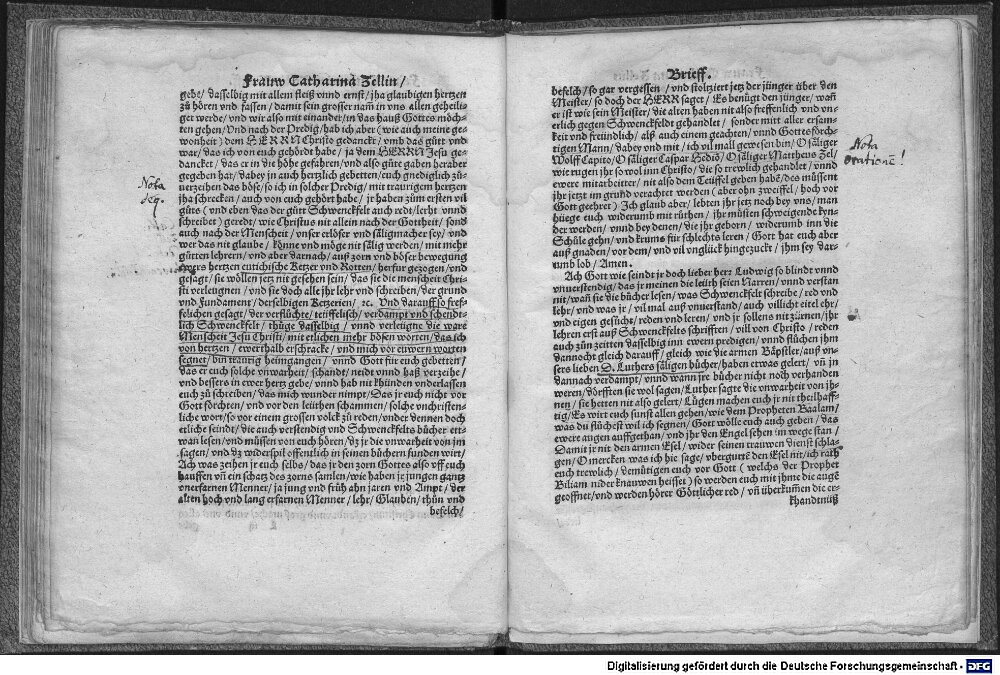 Frauw Catharina Zellin /
gebe / dasselbig mit allem fleiß vnnd ernst / jha glaubigen hertzen
zů hören vnd fassen / damit sein grosser nam̃ in vns allen geheili-
get werde / vnd wir also mit einander / in das hauß Gottes möch-
ten gehen / Vnd nach der Predig / hab ich aber ( wie auch meine ge-
wonheit ) dem HERRN Christo gedanckt / vmb das gůtt vnd
war / das ich von euch gehördt habe / ja dem HERRN Jesu ge-
danckt / das er in die höhe gefahren / vnd also gůte gaben heraber
gegeben hat / dabey jn auch hertzlich gebetten / euch gnediglich zů-
uerzeihen das böse / so ich in solcher Predig / mit traurigem hertzen
jha schrecken / auch von euch gehört habe / jr haben zům ersten vil
gůts ( vnd eben das der gůtt Schwenckfelt auch redt / lerht vnnd
schreibet ) geredt / wie Christus nit allein nach der Gottheit / sond
auch nach der Menscheit / vnser erlöser vnd säligmacher sey / vnd
wer das nit glaube / könne vnd möge nit sälig werden / mit mehr
gůtten lehren / vnd aber darnach / auß zorn vnd böser bewegung
ewers hertzen eutichische Ketzer vnd Rotten / herfur gezogen / vnd
gesagt / sie wöllen jetz nit gesehen sein / das sie die menscheit Chri-
sti verleugnen / vnd sie doch alle jhr lehr vnd schreiben / der grund
vnd Fundament / derselbigen Ketzerien / ꝛc. Vnd darauff so fref-
felichen gesagt / der verflůchte / teüffelisch / verdampt vnd schendt-
lich Schwenckfelt / thüge dasselbig / vnnd verleügne die ware
Menscheit Jesu Christi / mit etlichen mehr bösen worten / das ich
von hertzen / ewerthalb erschracke / vnd mich vor euwern worten
segnet / bin traurig heimgangen / vnnd Gott für euch gebetten /
das er euch solche vnwarheit / schandt / neidt vnnd haß verzeihe /
vnd bessers in ewer hertz gebe / vnnd hab nit khünden vnderlassen
euch zů schreiben / das mich wunder nimpt / Das jr euch nicht vor
Gott förchten / vnd vor den leüthen schammen / solche vnchristen-
liche wort / so vor einem grossen volck zů reden / vnder dennen doch
ettliche seindt / die auch verstendig vnd Schwenckfelts bücher ett-
wan lesen / vnd müssen von euch hören / dz jr die vnwarheit von jm
sagen / vnd dz widerspil offentlich in seinen büchern funden wirt /
Ach was zeihen jr euch selbs / das jr den zorn Gottes also vff euch
hauffen vñ ein schatz des zorns samlen / wie haben jr jungen gantz
vnerfarnen Menner / ja jung vnd früh ahn jaren vnd Ampt / der
alten hoch vnd lang erfarnen Menner / lehr / Glauben / thůn vnd
befelch /
Nota
seq.
Brieff.
befelch / so gar vergessen / vnd stoltziert jetz der jünger über den
Meister / so doch der HERR saget / Es benügt den jünger / wañ
er ist wie sein Meister / die alten haben nit also freffenlich vnd vn-
erlich gegen Schwenckfeldt gehandlet / sonder mitt aller ersam-
keit vnd freündlich / alß auch einem geachten / vnnd Gottsförch-
tigen Mann / dabey vnd mit / ich vil mall gewesen bin / O säliger
Wolff Capito / O säliger Caspar Hediõ / O säliger Mattheus Zel /
wie rugen jhr so wol inn Christo / die so trewlich gehandlet / vnnd
ewere mitarbeiter / nit also dem Teüffel geben habẽ / des müssent
jhr jetzt im grund verachtet werden ( aber ohn zweiffel / hoch vor
Gott geehret ) Jch glaub aber / lebten jhr jetz noch bey vns / man
hüege euch widerumb mit růthen / jhr müsten schweigende kyn-
der werden / vnnd bey denen / die jhr geborn / widerumb inn die
Schůle gehn / vnd krums für schlechts leren / Gott hat euch aber
auß gnaden / vor dem / vnd vil vnglück hingezuckt / jhm sey dar-
umb lob / Amen.
Ach Gott wie seindt jr doch lieber herr Ludwig so blindt vnnd
vnuerstendig / das jr meinen die leüth seien Narren / vnnd verstan
nit / wañ sie die bücher lesen / was Schwenckfelt schreibe / red vnd
lehr / vnd was jr / vil mal auß vnuerstand / auch villicht eitel ehr /
vnd eigen gesücht / reden vnd leren / vnd jr sollens nit zürnen / jhr
lehren erst auß Schwenckfelts schrifften / vill von Christo / reden
auch zůn zeitten dasselbig inn ewern predigen / vnnd flůchen jhm
dannocht gleich darauff / gleich wie die armen Bäpstler / auß vn-
sers lieben D. Luthers säligen bücher / haben etwas gelert / vñ jn
dannach verdampt / vnnd wann jre bücher nicht noch verhanden
weren / dörfften sie wol sagen / Luther sagte die vnwarheit von jh-
nen / sie hetten nit also gelert / Lügen machen euch jr nit theilhaff-
tig / Es wirt euch sunst allen gehen / wie dem Propheten Baalam /
was du flůchest wil ich segnen / Gott wölle euch auch geben / das
ewere augen auffgethan / vnd jhr den Engel sehen im wege stan /
Damit jr nit den armen Esel / wider seinen trauwen dienst schla-
gen / O mercken was ich hie sage / vbergurtẽ den Esel nit / ich rath
euch trewlich / demütigen euch vor Gott ( welchs der Prophet
Biliam nider knauwen heisset ) so werden euch mit jhme die augẽ
geoffnet / vnd werden hörer Göttlicher red / vñ überkum̃en die er-
khandtnüß
Nota
orationẽ!
Digitalisierung gefördert durch die Deutsche Forschungsgemeinschaft - DFG